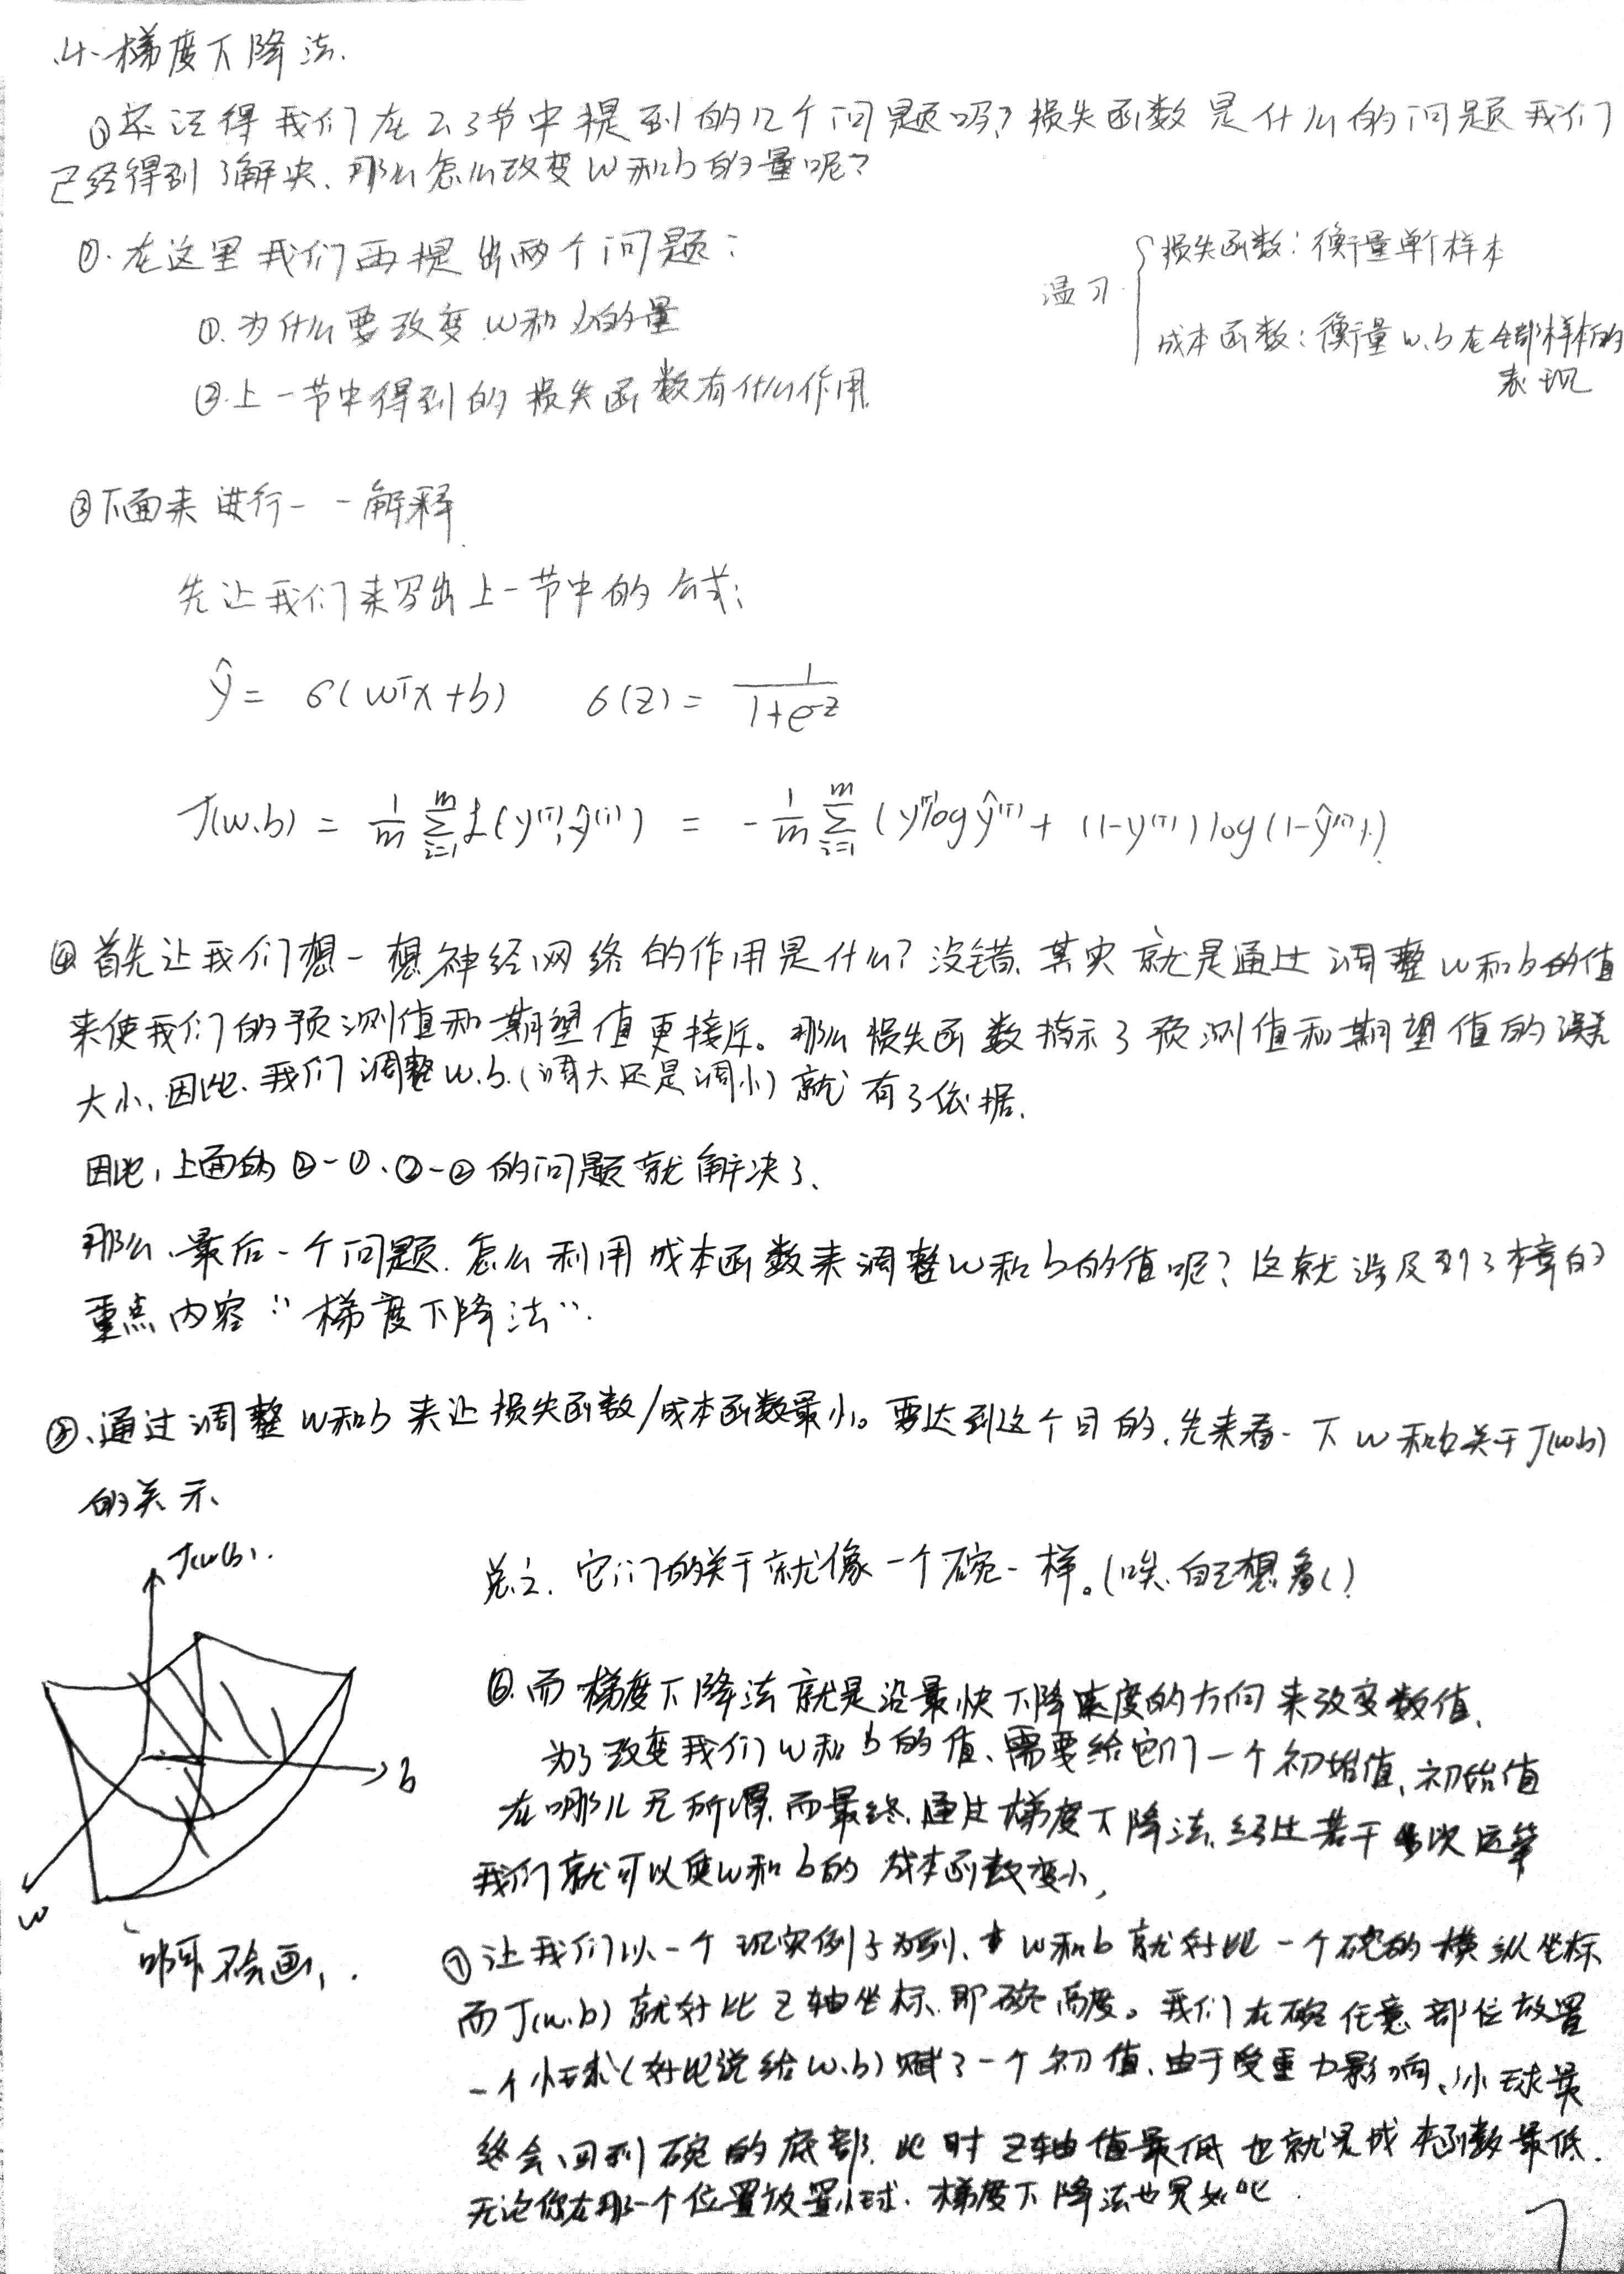 4. 梯度下降法.
①还记得我们在2.3节中提到的几个问题吗?损失函数是什么的问题我们
已经得到了解决、那么怎么改变w和b的量呢?
②. 在这里我们再提出两个问题:
①. 为什么要改变w和b的量
②. 上一节中得到的损失函数有什么作用.
温习
损失函数: 衡量单个样本
成本函数: 衡量w.b在全部样本的
表现
③下面来进行一一解释.
先让我们来写出上一节中的公式:
ŷ = σ(wᵀx+b)   σ(z) = 1/(1+e⁻ᶻ)
J(w.b) = 1/m Σᵢ₌₁ᵐ L(y⁽ⁱ⁾,ŷ⁽ⁱ⁾) = -1/m Σᵢ₌₁ᵐ (y⁽ⁱ⁾log ŷ⁽ⁱ⁾ + (1-y⁽ⁱ⁾)log(1-ŷ⁽ⁱ⁾))
④首先让我们想一想神经网络的作用是什么?没错、其实就是通过调整w和b的值
来使我们的预测值和期望值更接近。那么损失函数指示了预测值和期望值的误差
大小、因此、我们调整w.b.(调大还是调小)就有了依据.
因此,上面的②-①、②-②的问题就解决了、
那么、最后一个问题.怎么利用成本函数来调整w和b的值呢?这就涉及到了本章的
重点内容"梯度下降法".
⑤、通过调整w和b来让损失函数/成本函数最小。要达到这个目的、先来看一下w和b关于J(w.b)
的关系、
J(w,b).
b
w
啊不会画、.
总之、它们的关于就像一个碗一样。(唉、自己想象()
⑥. 而梯度下降法就是沿最快下降速度的方向来改变数值、
为了改变我们w和b的值、需要给它们一个初始值、初始值
在哪儿无所谓、而最终、通过梯度下降法、经过若干多次运算
我们就可以使w和b的成本函数变小,
⑦让我们以一个现实例子为例、w和b就好比一个碗的横纵坐标
而J(w.b)就好比z轴坐标、即碗高度。我们在碗任意部位放置
一个小球(好比说给w.b)赋了一个初值、由于受重力影响、小球最
终会回到碗的底部、此时z轴值最低也就是成本函数最低.
无论您在那一个位置放置小球、梯度下降法也是如此.
7